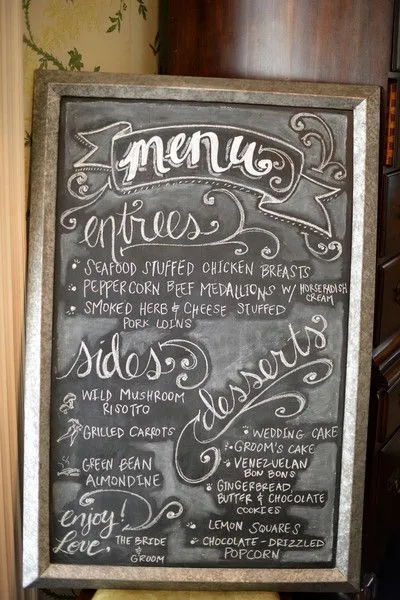 menu
entrees
SEAFOOD STUFFED CHICKEN BREASTS
PEPPERCORN BEEF MEDALLIONS W/ HORSERADISH
CREAM
SMOKED HERB & CHEESE STUFFED
PORK LOINS
sides
WILD MUSHROOM
RISOTTO
GRILLED CARROTS
GREEN BEAN
ALMONDINE
desserts
WEDDING CAKE
GROOM'S CAKE
VENEZUELAN
BON BONS
GINGERBREAD,
BUTTER & CHOCOLATE
COOKIES
LEMON SQUARES
CHOCOLATE-DRIZZLED
POPCORN
enjoy!
Love,
THE BRIDE
&
GROOM